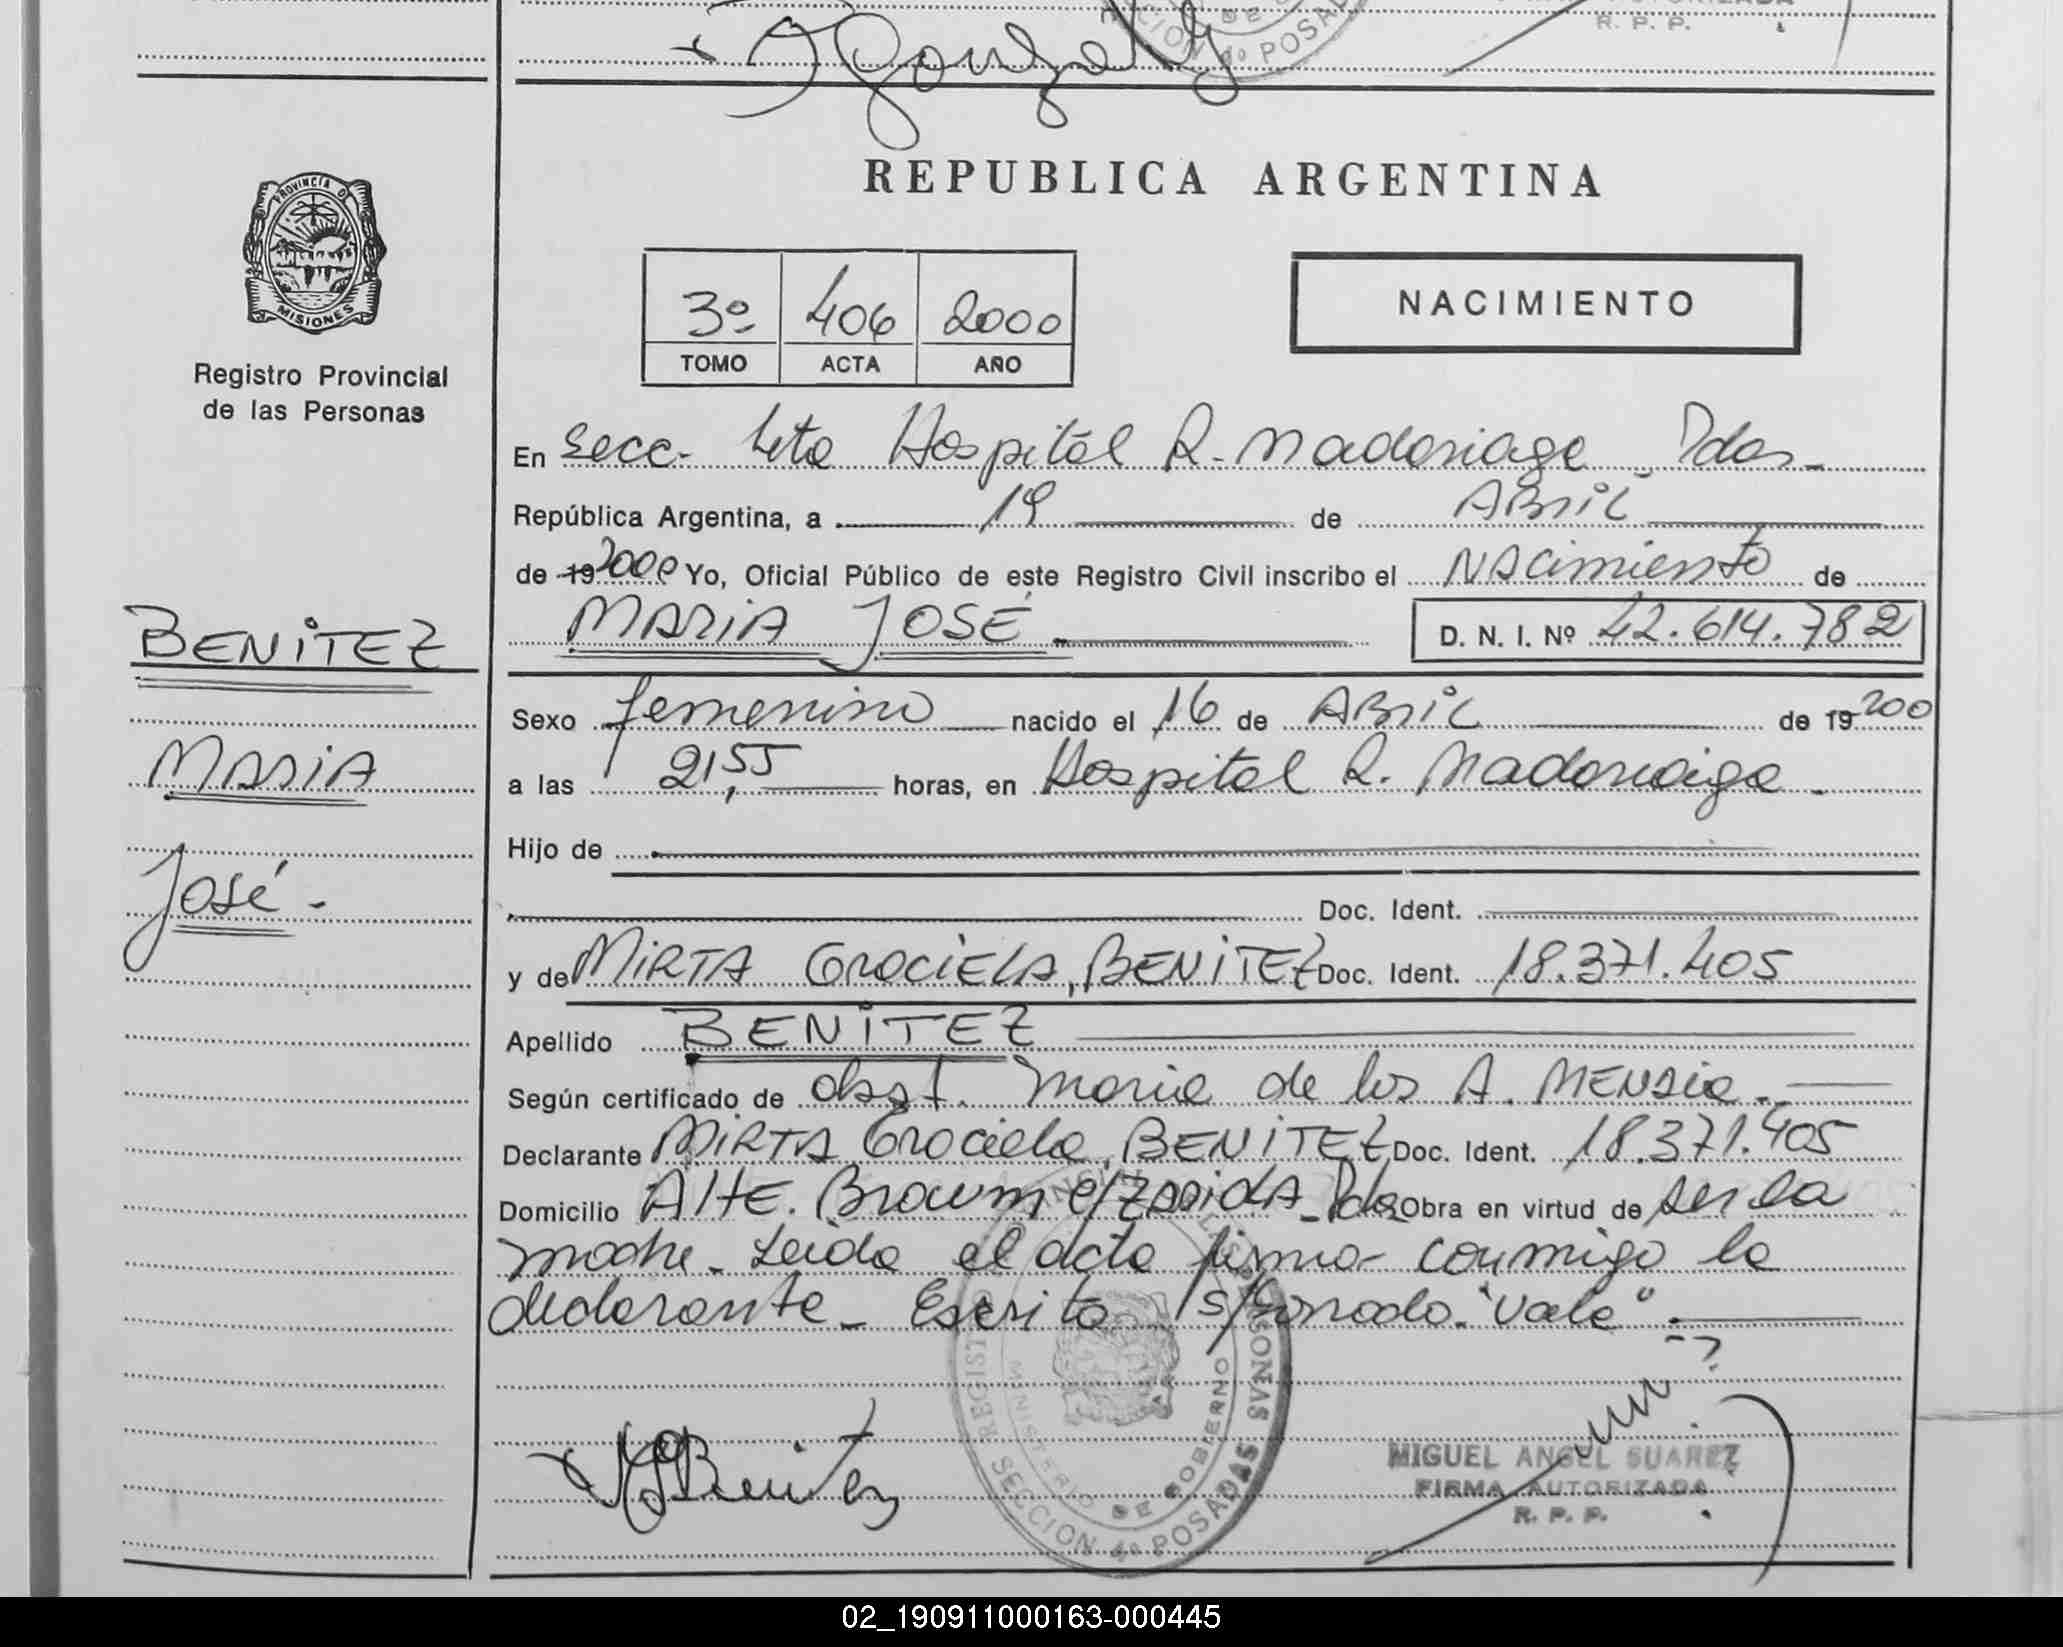 R. P. P.
Gonzalez
SECCION 4º POSADAS
REPUBLICA ARGENTINA
PROVINCIA DE
MISIONES
Registro Provincial
de las Personas
3º 406 2000
TOMO ACTA AÑO
NACIMIENTO
En Secc. 4ta Hospital R. Madariaga - Pdas -
República Argentina, a 19 de ABRIL
de 19 2000 Yo, Oficial Público de este Registro Civil inscribo el NACimiento de
MARIA JOSÉ.
D. N. I. Nº 42.614.782
BENITEZ
MARIA
José.-
Sexo femenino nacido el 16 de ABRIL de 19 200
a las 21,55 horas, en Hospital R. Madariaga.
Hijo de
Doc. Ident.
y de MIRTA GRACIELA, BENITEZ Doc. Ident. 18.371.405
Apellido BENITEZ
Según certificado de obst. Maria de los A. MENDIE.-
Declarante MIRTA Graciela, BENITEZ Doc. Ident. 18.371.405
Domicilio Alte. Brown Pdas Obra en virtud de ser la
madre. Leida el acta firma conmigo la
declarante - Escrito s/borrado "Vale".
Benitez
REGISTRO PROVINCIAL DE LAS PERSONAS
MINISTERIO DE GOBIERNO
SECCION 4º POSADAS
MIGUEL ANGEL SUAREZ
FIRMA AUTORIZADA
R. P. P.
02_190911000163-000445